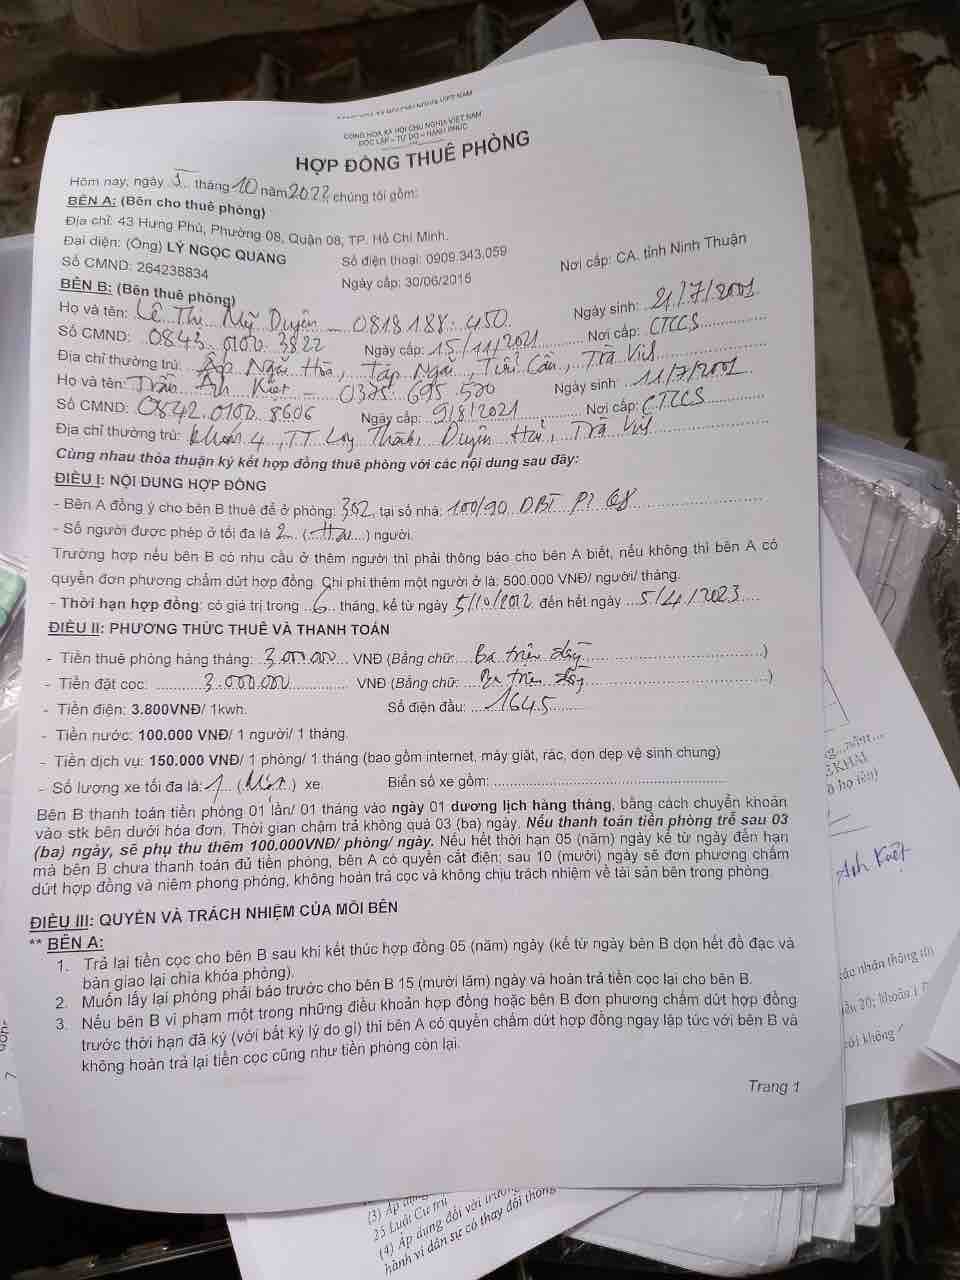 CỘNG HÒA XÃ HỘI CHỦ NGHĨA VIỆT NAM
ĐỘC LẬP – TỰ DO – HẠNH PHÚC
HỢP ĐỒNG THUÊ PHÒNG
Hôm nay, ngày 5 tháng 10 năm 2022, chúng tôi gồm:
BÊN A: (Bên cho thuê phòng)
Địa chỉ: 43 Hưng Phú, Phường 08, Quận 08, TP. Hồ Chí Minh.
Đại diện: (Ông) LÝ NGỌC QUANG Số điện thoại: 0909.343.059
Số CMND: 264238834 Ngày cấp: 30/06/2015 Nơi cấp: CA. tỉnh Ninh Thuận
BÊN B: (Bên thuê phòng)
Họ và tên: Lê Thị Mỹ Duyên – 0818 188 450 Ngày sinh: 21/7/2001
Số CMND: 0843 0100 3822 Ngày cấp: 15/11/2021 Nơi cấp: CTCCS
Địa chỉ thường trú: Ấp Ngãi Hòa, Tập Ngãi, Tiểu Cần, Trà Vinh
Họ và tên: Trần Anh Kiệt – 0375 695 520 Ngày sinh: 11/7/2001
Số CMND: 0842.0100.8606 Ngày cấp: 9/8/2021 Nơi cấp: CTCCS
Địa chỉ thường trú: Khóm 4, TT Long Thành, Duyên Hải, Trà Vinh
Cùng nhau thỏa thuận ký kết hợp đồng thuê phòng với các nội dung sau đây:
ĐIỀU I: NỘI DUNG HỢP ĐỒNG
- Bên A đồng ý cho bên B thuê để ở phòng: 302, tại số nhà: 100/90 DBT P1 Q8
- Số người được phép ở tối đa là 2 (Hai) người.
Trường hợp nếu bên B có nhu cầu ở thêm người thì phải thông báo cho bên A biết, nếu không thì bên A có
quyền đơn phương chấm dứt hợp đồng. Chi phí thêm một người ở là: 500.000 VNĐ/ người/ tháng.
- Thời hạn hợp đồng: có giá trị trong 6 tháng, kể từ ngày 5/10/2022 đến hết ngày 5/4/2023
ĐIỀU II: PHƯƠNG THỨC THUÊ VÀ THANH TOÁN
- Tiền thuê phòng hàng tháng: 3.000.000 VNĐ (Bằng chữ: Ba triệu đồng)
- Tiền đặt cọc: 3.000.000 VNĐ (Bằng chữ: Ba triệu đồng)
- Tiền điện: 3.800VNĐ/ 1kwh. Số điện đầu: 1645
- Tiền nước: 100.000 VNĐ/ 1 người/ 1 tháng.
- Tiền dịch vụ: 150.000 VNĐ/ 1 phòng/ 1 tháng (bao gồm internet, máy giặt, rác, dọn dẹp vệ sinh chung)
- Số lượng xe tối đa là: 1 (Một) xe. Biển số xe gồm:
Bên B thanh toán tiền phòng 01 lần/ 01 tháng vào ngày 01 dương lịch hàng tháng, bằng cách chuyển khoản
vào stk bên dưới hóa đơn, Thời gian chậm trả không quá 03 (ba) ngày. Nếu thanh toán tiền phòng trễ sau 03
(ba) ngày, sẽ phụ thu thêm 100.000VNĐ/ phòng/ ngày. Nếu hết thời hạn 05 (năm) ngày kể từ ngày đến hạn
mà bên B chưa thanh toán đủ tiền phòng, bên A có quyền cắt điện; sau 10 (mười) ngày sẽ đơn phương chấm
dứt hợp đồng và niêm phong phòng, không hoàn trả cọc và không chịu trách nhiệm về tài sản bên trong phòng.
ĐIỀU III: QUYỀN VÀ TRÁCH NHIỆM CỦA MỖI BÊN
** BÊN A:
1. Trả lại tiền cọc cho bên B sau khi kết thúc hợp đồng 05 (năm) ngày (kể từ ngày bên B dọn hết đồ đạc và
bàn giao lại chìa khóa phòng).
2. Muốn lấy lại phòng phải báo trước cho bên B 15 (mười lăm) ngày và hoàn trả tiền cọc lại cho bên B.
3. Nếu bên B vi phạm một trong những điều khoản hợp đồng hoặc bên B đơn phương chấm dứt hợp đồng
trước thời hạn đã ký (với bất kỳ lý do gì) thì bên A có quyền chấm dứt hợp đồng ngay lập tức với bên B và
không hoàn trả lại tiền cọc cũng như tiền phòng còn lại.
Trang 1
năm
KHAI
họ tên)
Anh Kiệt
các nhân thông tin
20; khoản 1
không
(3) Áp dụng
25 Luật Cư trú
(4) Áp dụng đối với trường
hành vi dân sự có thay đổi thông